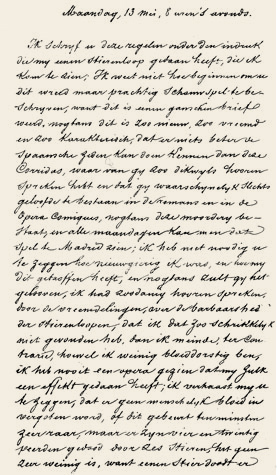 Maandag, 13 mei, 8 uren 's avonds.
Ik Schryf u deze regelen onder den indruk
die my eenen Stierenloop gedaan heeft, die ik
kom te zien; Ik weet niet hoe beginnen om u
dit wreed maar prachtig Schouwspel te be-
Schryven, want dit is eenen ganschen brief
weerd, nogtans dit is zoo nieuw, zoo vreemd
en zoo karakterisch, dat er niets beter de
Spaansche Zeden kan doen Kennen dan deze
Corridas, waar van gy zoo dikwyls hooren
Spreken hebt en dat gy waarschynelyk Slechts
geloofde te bestaan in de Romans en in de
Opera Comiques, nogtans deze moordery be-
staat, en alle maandagen kan men dat
Spel te Madrid zien; ik heb niet noodig u
te Zeggen hoe nieuwsgierig ik werd, en hoe my
dit getroffen heeft, en nogtans zult gy het
gelooven, ik had zoodanig hooren Spreken,
door de vreemdelingen, over de barbaarsheid
der Stierenloopen, dat ik dat Zoo Schrikkelyk
niet gevonden heb, dan ik meinde, ter Con-
trarie, howel ik weinig bloeddorstig ben,
ik heb nooit een opera gezien dat my Zulk
een affekt gedaan heeft; ik verhaast my u
te Zeggen, dat er geen menschelyk bloed in
vergoten word, of dit gebeurt ten minsten
zeer raar, maar er Zyn vier en twintig
peerden gedood door Zes Stieren, het geen
zeer weinig is, want eenen Stier doodt er